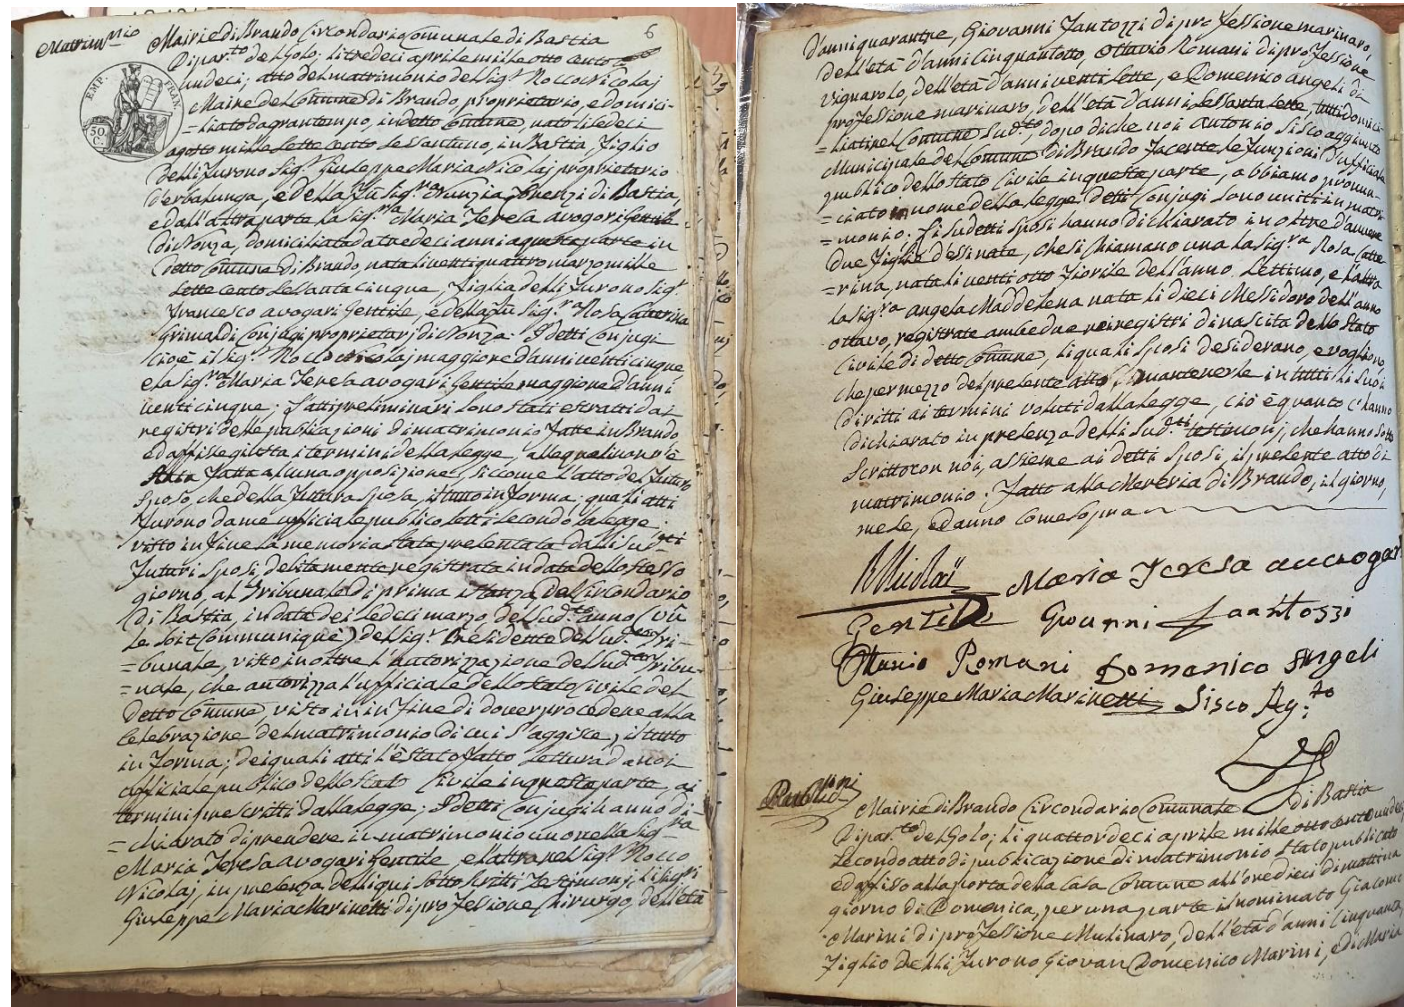 6
Matrimonio
EMP. FRAN.
50 C.
Mairie di Brando Circondario Comunale di Bastia
Dipar.to del Golo, li tredeci aprile mille otto cento
undeci; atto del matrimonio del sig.r Rocco Nicolaj
Maire del Comune di Brando, proprietario, e domici-
=liato da gran tempo, in detto Comune, nato li sedeci
agosto mille sette cento sessantuno, in Bastia, figlio
delli furono sig.r Giuseppe Maria Nicolaj proprietario
d'erbalunga, e della fu sig.ra Nunzia Lorenzi di Bastia,
e dall'altra parte la sig.ra Maria Teresa avogari gentile
di Nonza, domiciliata da tredeci anni a questa parte in
detto Comune di Brando, nata li venti quattro marzo mille
sette cento sessanta cinque, figlia delli furono sig.r
Francesco avogari Gentile, e della fu sig.ra Rosa Catterina
Grimaldi Conjugi proprietarj di Nonza. I detti Conjugi
cioè il sig.r Rocco Nicolaj maggiore d'anni venti cinque
e la sig.ra Maria Teresa avogari Gentile maggiore d'anni
venti cinque; L'atti preliminari sono stati estratti dai
registri delle publicazioni di matrimonio fatte in Brando
ed affise giusta i termini della legge, alle quali non v'è
stata fatta alcuna opposizione, siccome l'atto del futuro
sposo, che della futura sposa, il tutto in forma; quali atti
furono da me ufficiale publico letti secondo la legge.
visto in fine la memoria stata presentata dalli sud.ti
futuri sposi debitamente registrata in data dello stesso
giorno, al Tribunale di prima istanza del Circondario
di Bastia, in data dei sedeci marzo del sud.to anno (vû
le soit Communiqué) del sig.r Presidente del sud.to Tri-
=bunale, visto inoltre l'autorizzazione del sud.to Tribu-
=nale, che autorizza l'ufficiale dello stato Civile del
detto Comune, visto in in fine di dover procedere alla
celebrazione del matrimonio di cui s'aggisce, il tutto
in forma; dei quali atti l'è stato fatto lettura da noi
officiale publico dello stato Civile in questa parte, ai
termini prescritti dalla legge; I detti Conjugi hanno di-
=chiarato di prendere in matrimonio uno nella sig.ra
Maria Teresa avogari Gentile, e l'altra nel sig.r Rocco
Nicolaj, in presenza delli qui sotto scritti Testimonj, li sig.ri
Giuseppe Maria Marinetti di professione Chirurgo, dell'età
d'anni quarantre, Giovanni Fantozzi di professione marinaro,
dell'età d'anni cinquantotto, Ottavio Romani di professione
vignarolo, dell'età d'anni venti sette, e Domenico angeli di
professione marinaro, dell'età d'anni sessanta sette, tutti domici-
=liati nel Comune sud.to, dopo di che noi Antonio Sisco aggiunto
Municipale del Comune di Brando facente le funzioni d'ufficiale
publico dello stato Civile in questa parte, abbiamo pronun-
=ciato in nome della legge detti Conjugi sono uniti in matri-
=monio. Li sudetti sposi hanno dichiarato inoltre d'avere
due figlie dessinate, che si chiamano una la sig.ra Rosa Catte-
=rina, nata li venti otto fiorile dell'anno settimo, e l'altra
la sig.ra angela Maddelena nata li dieci Messidoro dell'anno
ottavo, registrate ambedue nei registri di nascita dello stato
Civile di detto Comune, li quali sposi desiderano, e vogliono
che per mezzo del presente atto mantenerle in tutti li suoi
diritti ai termini voluti dalla legge, ciò è quanto c'hanno
dichiarato in presenza delli sud.ti testimonj, che hanno sotto
scritto con noi, assieme ai detti sposi, il presente atto di
matrimonio. Fatto alla Mereria di Brando, il giorno,
mese, ed anno come sopra
RNicolaj Maria Teresa avogari
Gentile Giovanni Fantozzi
Ottavio Romani Domenico Angeli
Giuseppe Maria Marinetti Sisco Ag.to
Publicioni
Mairie di Brando Circondario Comunale di Bastia
Dipar.to del Golo, li quattordeci aprile mille otto cento undeci
secondo atto di publicazione di matrimonio stato publicato
ed affiso alla porta della Casa Comune all'ore dieci di mattina
giorno di Domenica, per una parte il nominato Giacomo
Marini di professione Mulinaro, dell'età d'anni cinquanta,
figlio delli furono Giovan Domenico Marini, e di Maria